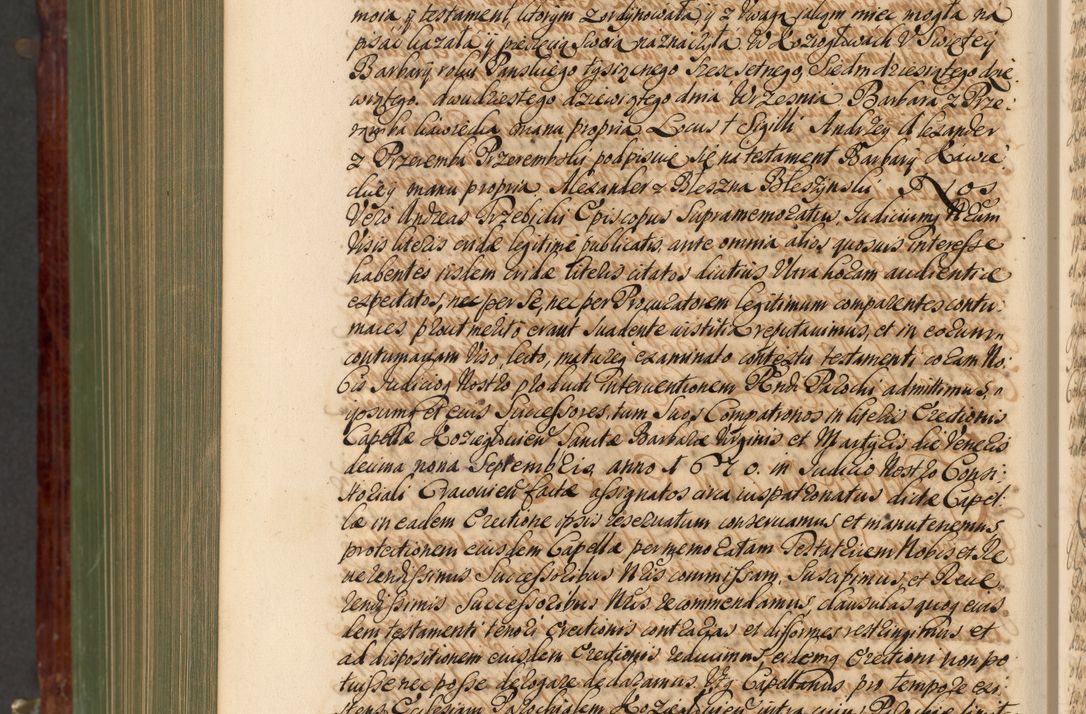 moia y testament, ktorym zordynowała y z Uwagi jakąm miec mogła na
pisac kazała y pieczęcią swoią naznaczyła W Koziogłowach U Swietey
Barbary roku Panskiego tysącznego Szesc setnego, Siedm dziesiątego dzie
wiątego. dwudziestego dziewiątego dnia Wrzesnia Barbara z Prze:
rąmba Kawiecka manu propria Locus † Sigilli Andrzey Alexander
z Przeremba Przerembski podpisuie się na testament Barbary Kawie
ckiey manu propria Alexander z Bleszna Bleszynski. Nos
Vero Andreas Trzebicki Episcopus Supramemoratus Judiciumq Nrum
Visis literis eiisdē legitime publicatis, ante omnia alios quosuis interesse
habentes iisdem literis citatos diutius Ultra horam audientiæ
expectatos, nec per se, nec per Procuratorem legitimum comparentes contu:
maces prout meriti erant Suadente iustitia reputauimus, et in eorum
contumaciam Viso, lecto, matureq examinato contextu testamenti coram No:
bis Judicioq Nostro producti interventionem Rndi Parochi admittimus,
ipsumq et eius Successores, tum Suos Compatronos in literis Erectionis
Capellæ Koziegłouien Sanctæ Barbaræ Virginis et Martyris die Veneris
decima nona Septembris anno 1670. in Judicio Nostro Consi:
storiali Cracouien factæ assignatos circa iuspatronatus dictæ Capel:
læ in eadem Erectione ipsis reseruatum conseruamus et manutenemus,
protectionem eiusdem Capellæ per memoratam Testatricem Nobis et Re
uerendissimis Successoribus Nris commissam, Suscipimus, et Reue
rendissimis Successoribus Nris recommendamus, clausulas quoq eius
dem testamenti tenori Erectionis contrarias et difformes restringimus et
ad dispositionem eiusdem Erectionis reducimus, eidemq Erectioni non po
tuisse nec posse derogare declaramus. Utq Capellanus pro tempore exi:
stens Ecclesiam Parochialem